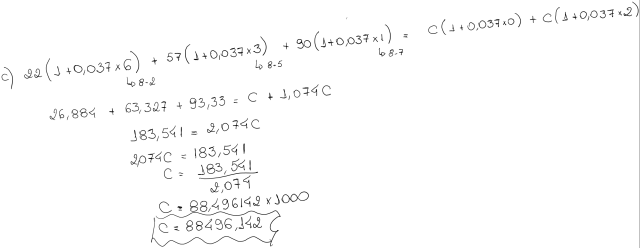 c) 22(1+0,037×6) + 57(1+0,037×3) + 90(1+0,037×1) = C(1+0,037×0) + C(1+0,037×2)
↳8-2 ↳8-5 ↳8-7
26,884 + 63,327 + 93,33 = C + 1,074C
183,541 = 2,074C
2,074C = 183,541
C = 183,541
2,074
C = 88,496142 × 1000
C = 88496,142 €